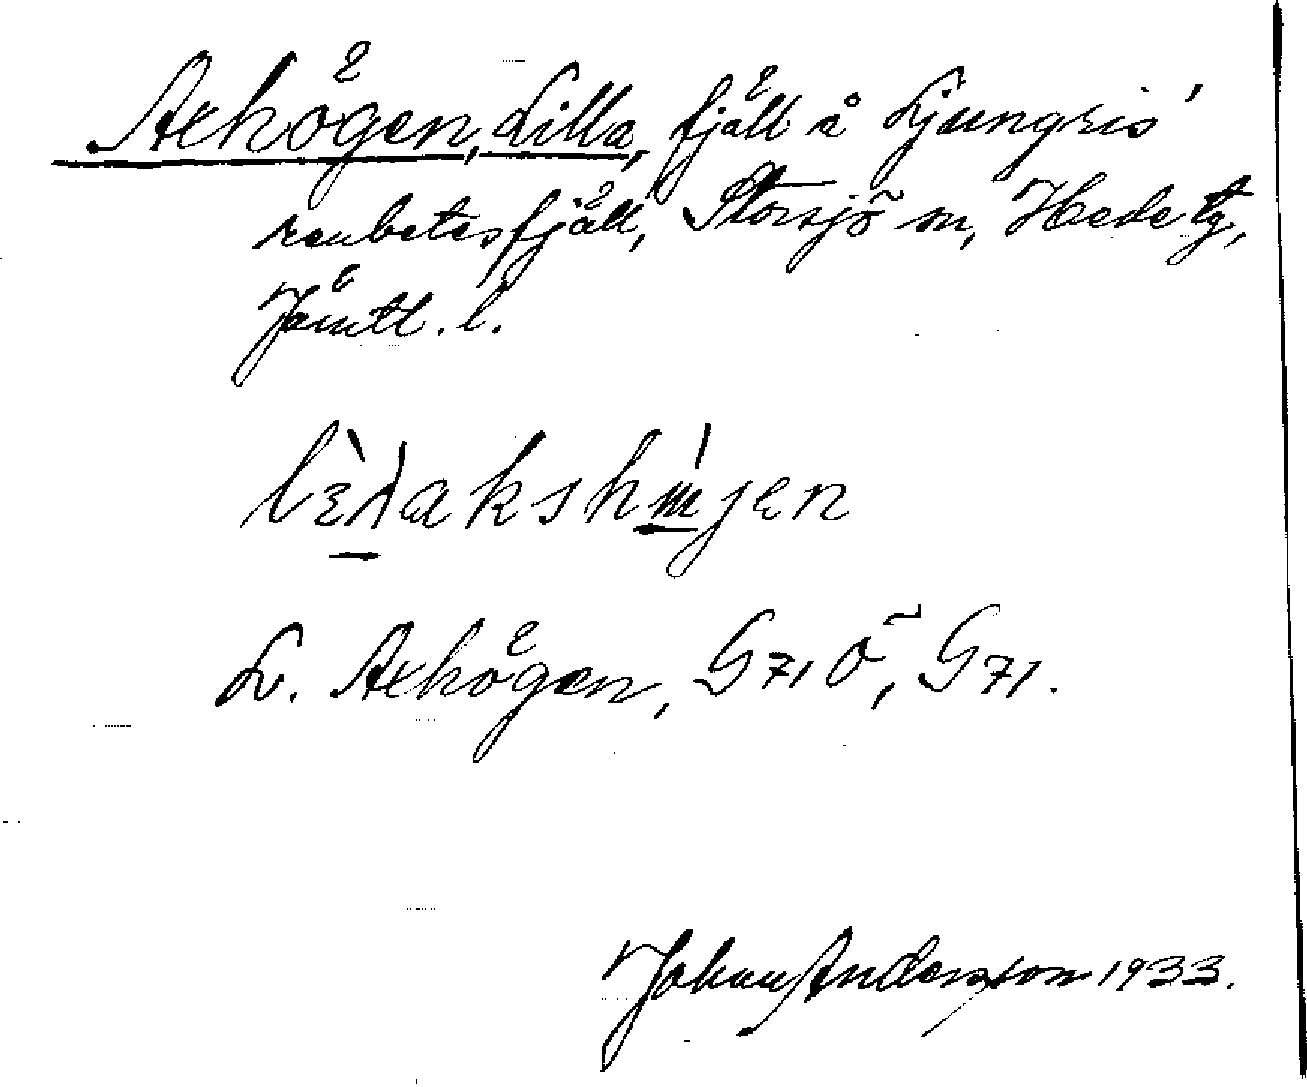 Axhögen, Lilla, fjäll å Ljungris'
renbetesfjäll, Storsjö sn, Hede tg,
Jämtl. l.
L. Axhögen, G 71 Ö, G 71.
Johan Andersson 1933.